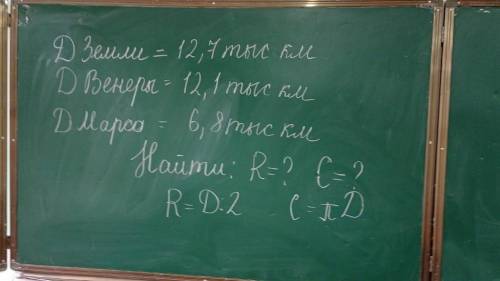 Д Земли = 12,7 тыс км
Д Венеры = 12,1 тыс км
Д Марса = 6,8 тыс км
Найти: R=? C=?
R=D:2 C=πD